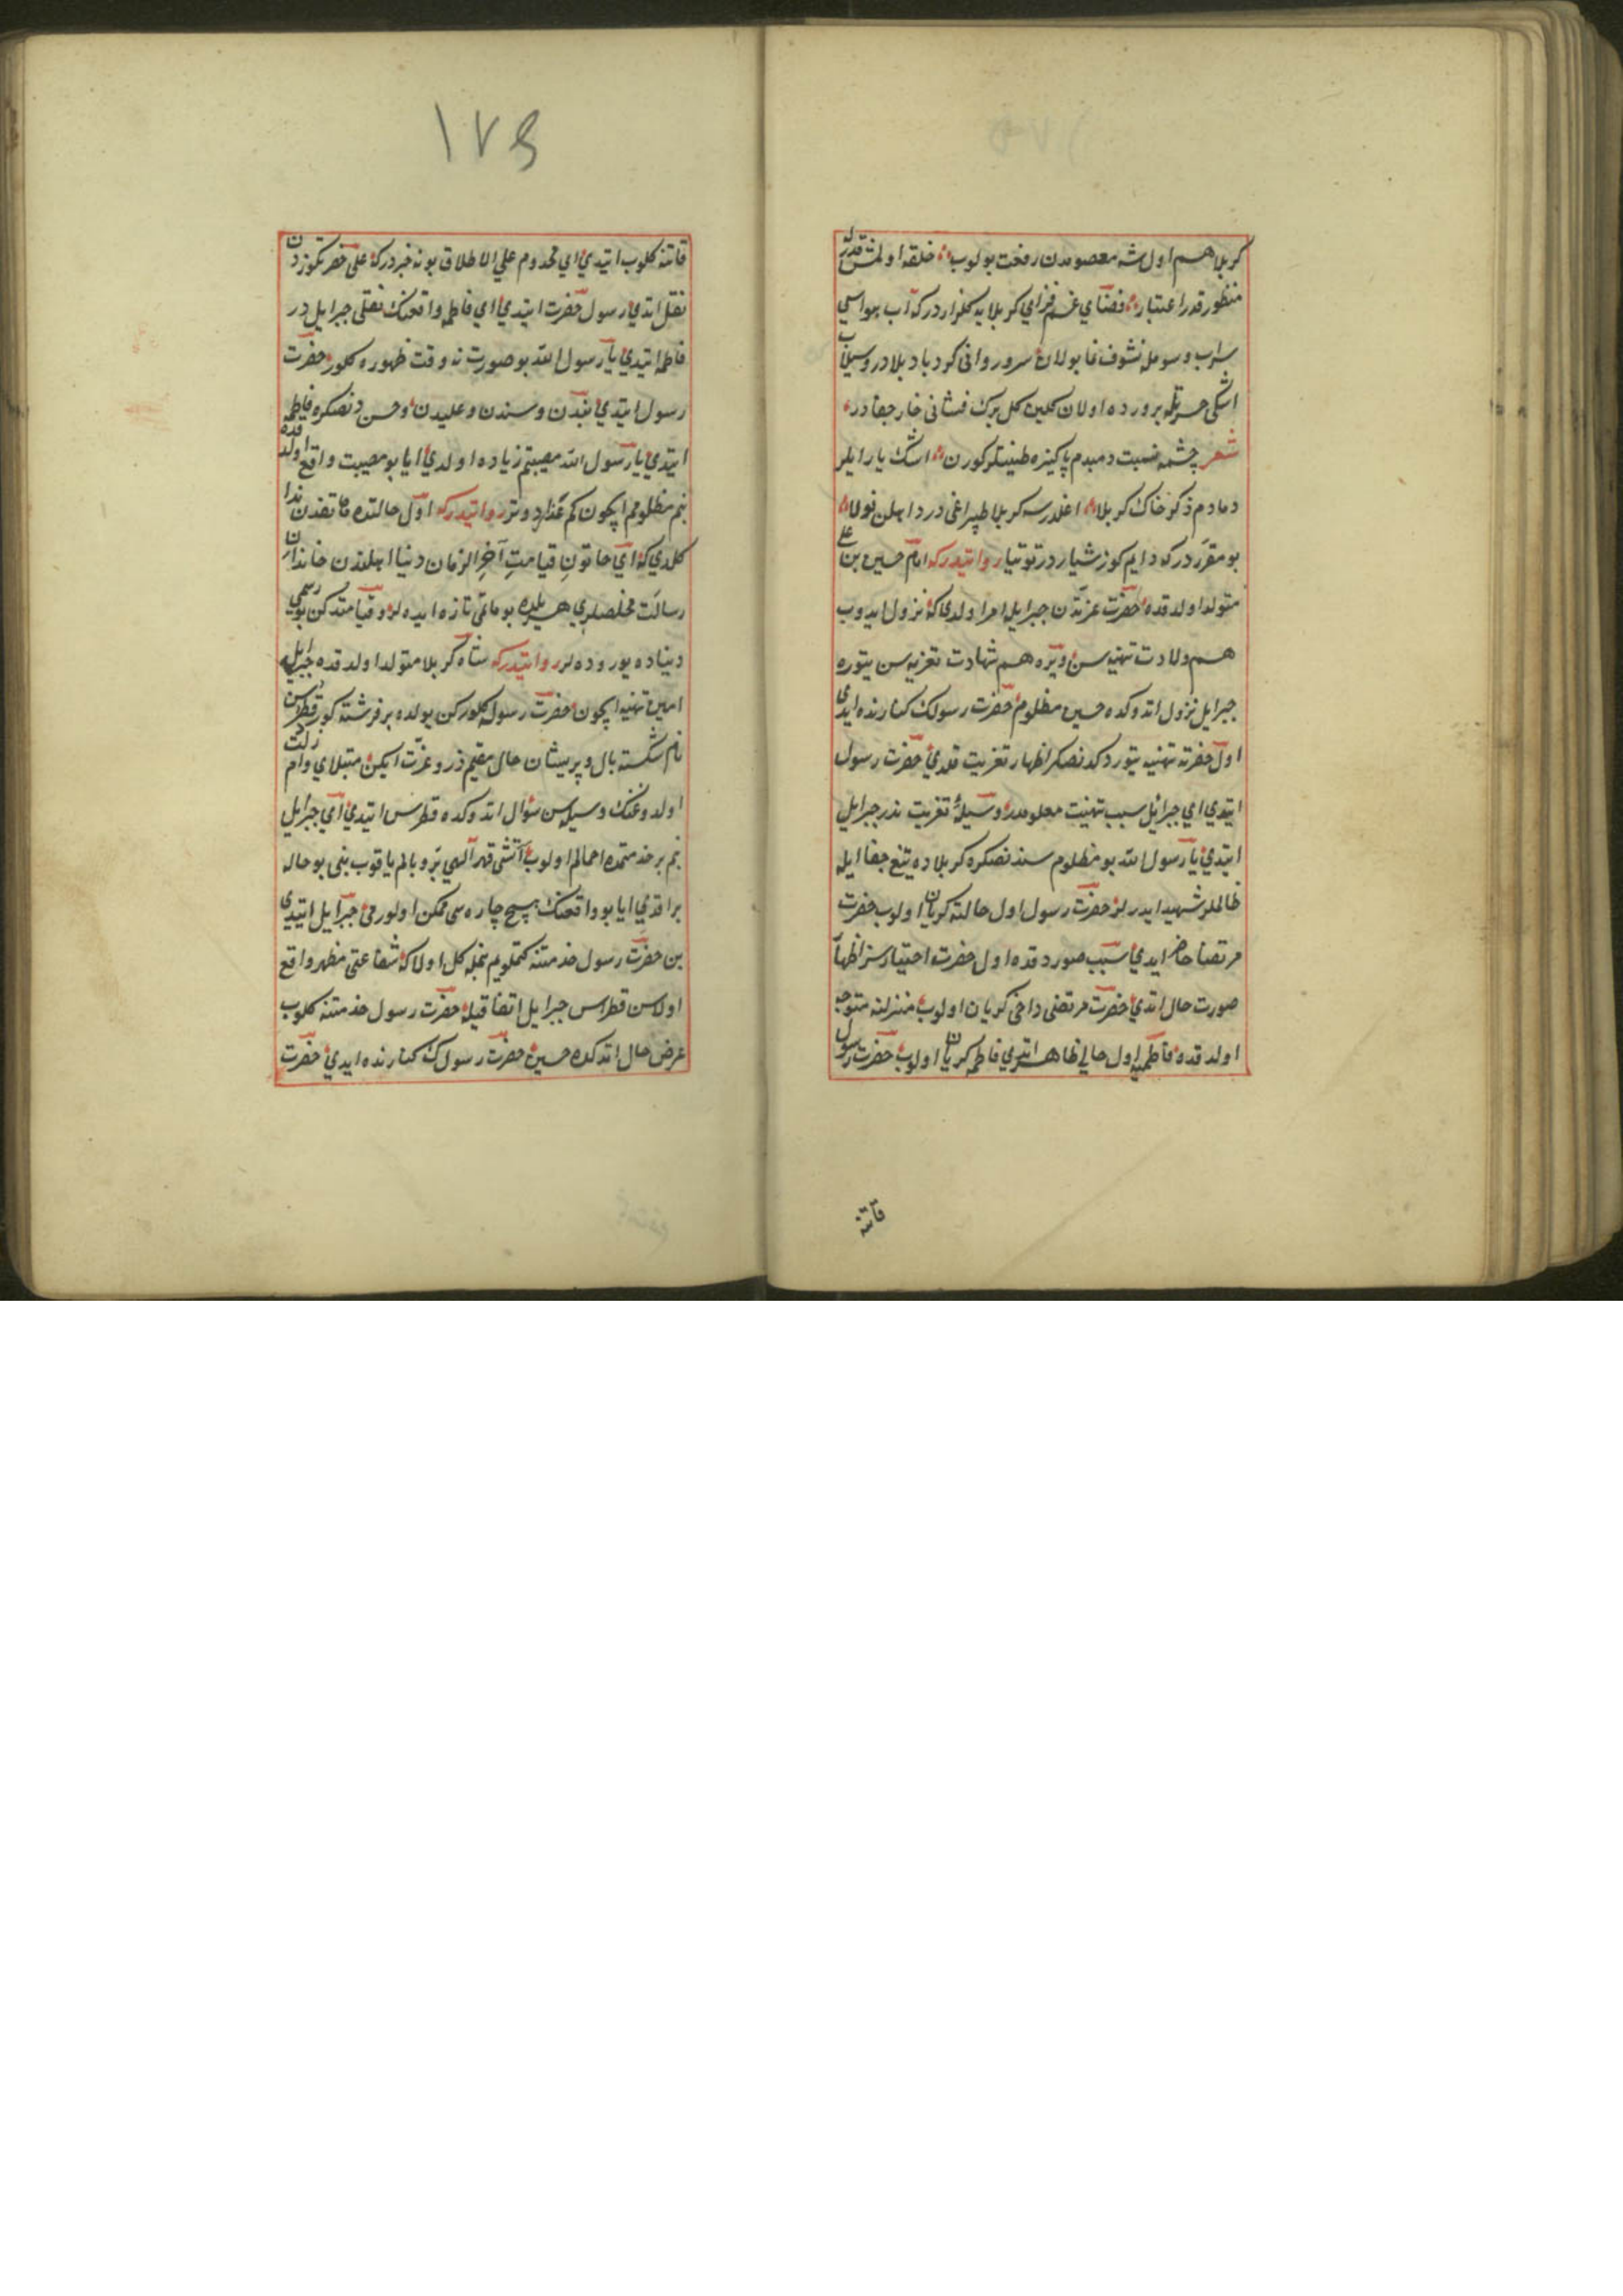 كربلا هم اول شه معصومدن رفعت بولوب خلقه اولمش قدر
منظور قدر اعتبار فضاي غم فزاي كربلا يه كلزار دركه آب هواسي
سراب وسومله نشوف نما بولان سرو رواني كردباد بلادر وسيلاب
اشكي حسرتله پرورده اولان كلبن كل برك فشاني خار جفادر
شعر چشمه نسبت دمبدم پاكيزه طينتلر كورن اشك يارايلر
دمادم ذكر خاك كربلا اغلدرسه كربلا طپراغي درد اهلن نولا
بو مقرردركه دايم كوز ياشاردر توتيا روايتدركه امام حسين بن علي
متولد اولدقده حضرت عزتدن جبرايله امر اولدي كه نزول ايدوب
هم ولادت تهنيه سن ويره هم شهادت تعزيه سن يتوره
جبرايل نزول اتدوكده حسين مظلوم حضرت رسولك كنارنده ايدي
اول حضرته تهنيه يتوردكدنصكر اظهار تعزيت قلدي حضرت رسول
ايتدي اي جبرائيل سبب تهنيت معلومدر وسيلۀ تعزيت ندر جبرايل
ايتدي يا رسول الله بو مظلوم سندنصكره كربلاده تيغ جفا ايله
ظالملر شهيد ايدرلر حضرت رسول اول حالته كريان اولوب حضرت
مرتضا حاضر ايدي سبب صوردقده اول حضرت اختيارسز اظهار
صورت حال اتدي حضرت مرتضى داخي كريان اولوب منزلنه متوجه
اولدقده فاطميه اول حالي ظاهر اتدي فاطمه كريان اولوب حضرت رسول
قاتنه
١٧٥
قاتنه كلوب ايتدي اي مخدوم علي الاطلاق بو نه خبردركه علي حضرتكوزدن
نقل اتدي رسول حضرت ايتدي اي فاطمه واقعنك نقلي جبرايلدر
فاطمه ايتدي يا رسول الله بو صورت نه وقت ظهوره كلور حضرت
رسول ايتدي بندن وسندن وعليدن وحسندنصكره فاطمه
ايتدي يا رسول الله مصيبتم زياده اولدي ايا بو مصيبت واقع اولدقده
بنم مظلومم ايچون كم عذا دوتر روايتدركه اول حالتده هاتفدن ندا
كلدي كه اي خاتون قيامت آخر الزمان دنيا اهلندن خاندان
رسالت مخلصلري هر يلده بو ماتمي تازه ايده لر وقيامتدكن بو رسمي
دنياده يوروده لر روايتدركه شاه كربلا متولد اولدقده جبرايل
امين تهنيه ايچون حضرت رسوله كلوركن يولده بر فرشته كورر قطرس
نام شكسته بال وپريشان حال مقيم ذروۀ عزت ايكن مبتلاي دام ذلت
اولدوغنك وسيله سن سؤال اتدوكده قطرس ايتدي اي جبرايل
بنم بر خدمتمده احمالم اولوب آتشي قهر الهي پر وبالم ياقوب بني بو حاله
براقدي ايا بو واقعنك هيچ چاره سي ممكن اولورمي جبرايل ايتدي
بن حضرت رسول خدمتنه كتملويم بنمله كل اولاكه شفاعتي مظهر واقع
اولاسن قطراس جبرايل اتفاقيله حضرت رسول خدمتنه كلوب
عرض حال اتدكده حسين حضرت رسولك كنارنده ايدي حضرت